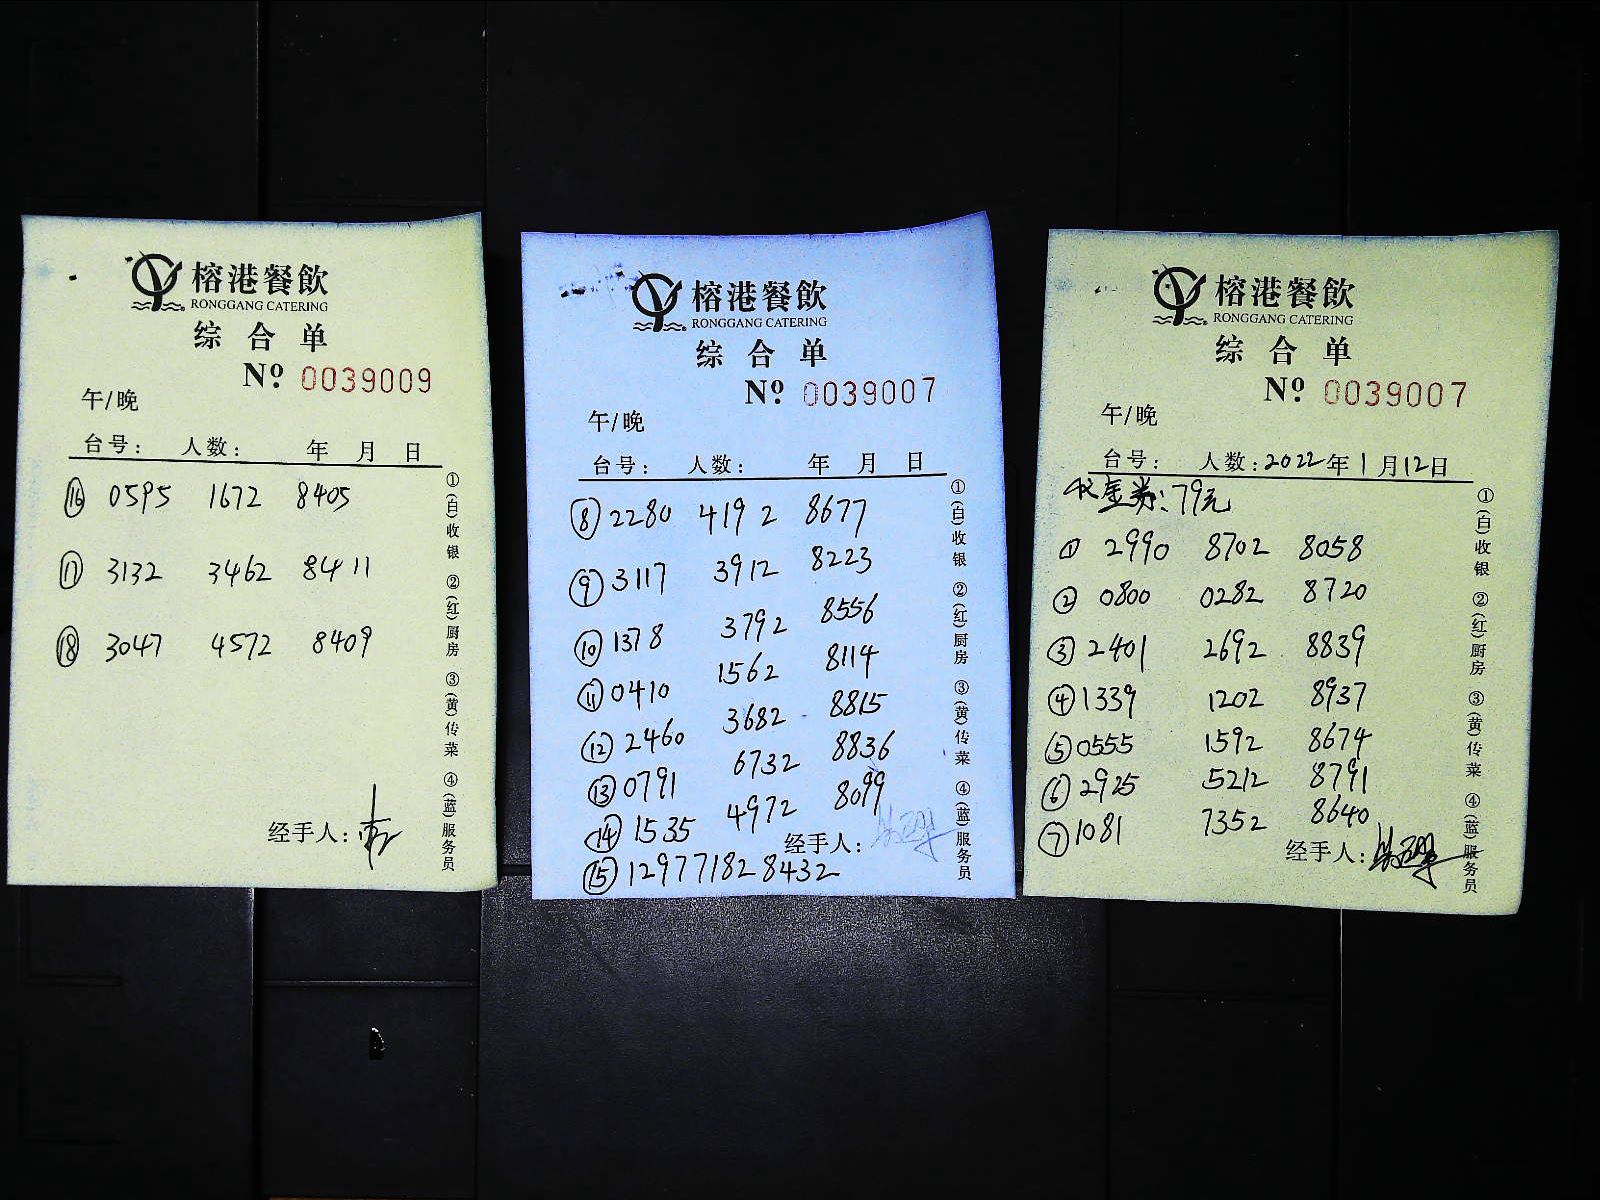 榕港餐飲
RONGGANG CATERING
综合单
Nº 0039009
午/晚
台号: 人数: 年 月 日
⑯ 0595 1672 8405
⑰ 3132 3462 8411
⑱ 3047 4572 8409
经手人:
①(白)收银 ②(红)厨房 ③(黄)传菜 ④(蓝)服务员
榕港餐飲
RONGGANG CATERING
综合单
Nº 0039007
午/晚
台号: 人数: 年 月 日
⑧ 2280 4192 8677
⑨ 3117 3912 8223
⑩ 1378 3792 8556
⑪ 0410 1562 8114
⑫ 2460 3682 8815
⑬ 0791 6732 8836
⑭ 1535 4972 8099
经手人:
⑮ 1297 7182 8432
①(白)收银 ②(红)厨房 ③(黄)传菜 ④(蓝)服务员
榕港餐飲
RONGGANG CATERING
综合单
Nº 0039007
午/晚
台号: 人数: 2022年1月12日
金券: 79元
① 2990 8702 8058
② 0800 0282 8720
③ 2401 2692 8839
④ 1339 1202 8937
⑤ 0555 1592 8674
⑥ 2925 5212 8791
⑦ 1081 7352 8640
经手人:
①(白)收银 ②(红)厨房 ③(黄)传菜 ④(蓝)服务员